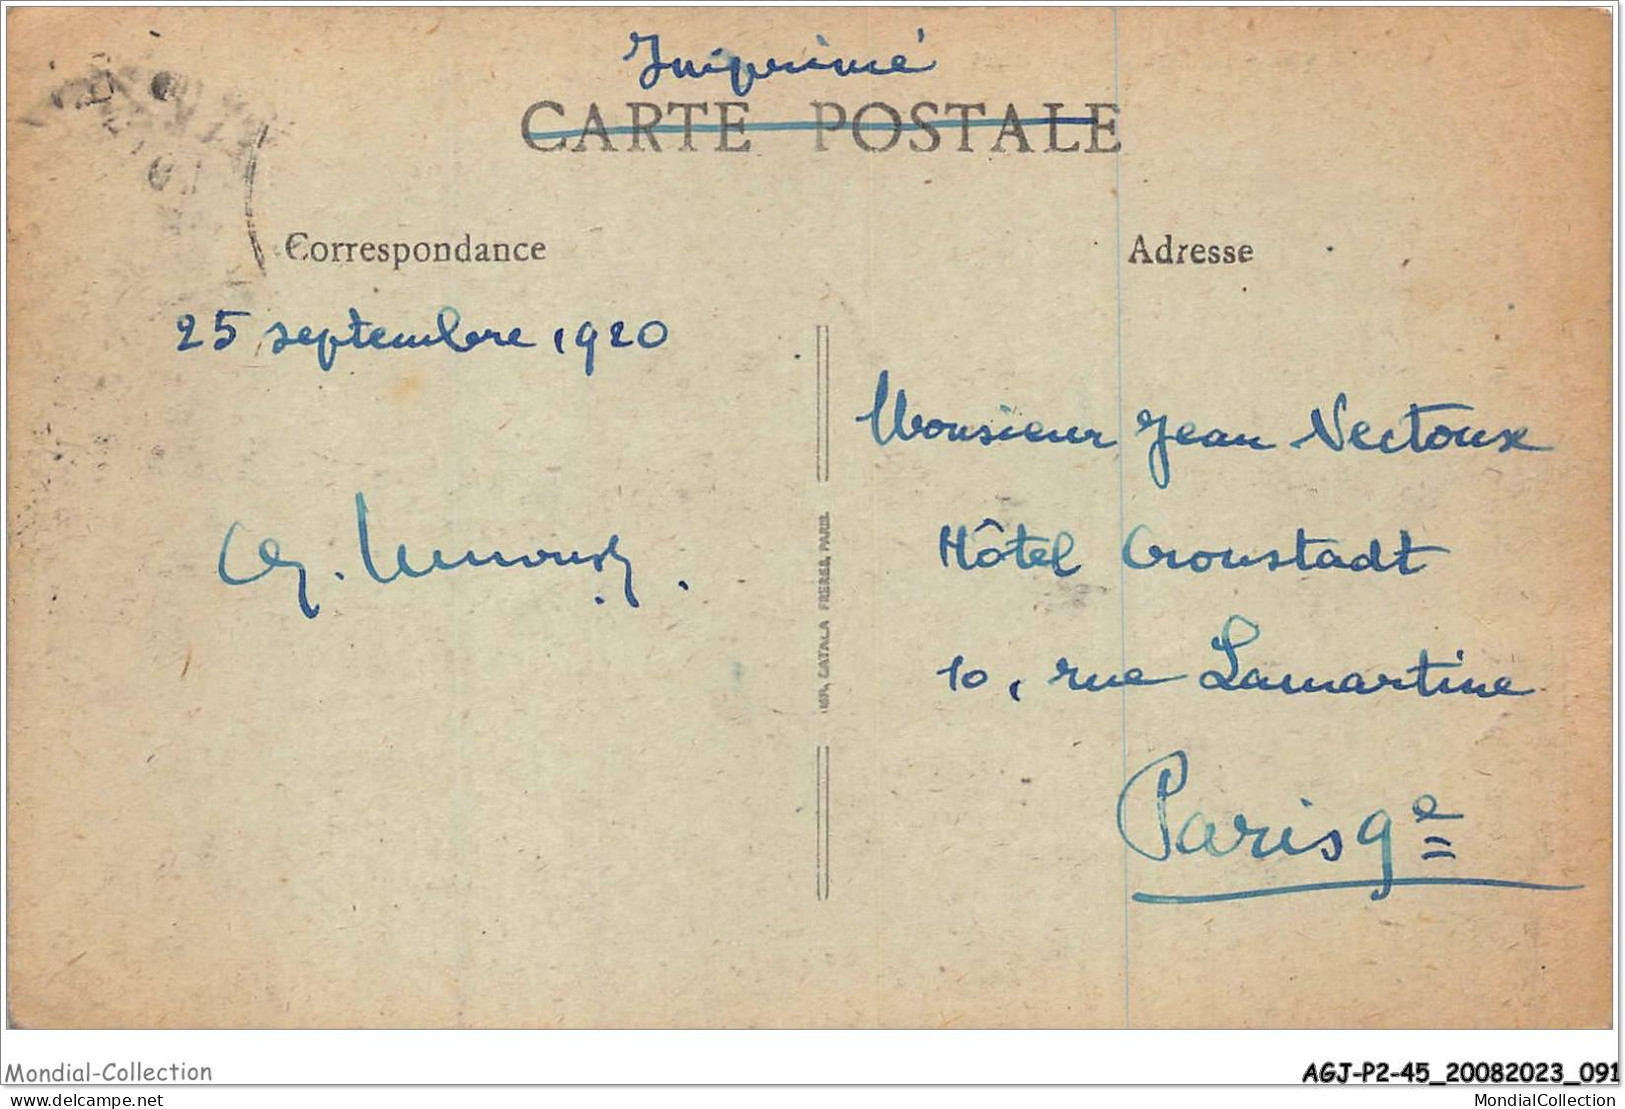 Imprimé
CARTE POSTALE
Correspondance
Adresse
25 septembre 1920
Monsieur Jean Nectoux
Hôtel Cronstadt
10, rue Lamartine
Paris 9e
IMP. CATALA FRERES, PARIS.
Mondial-Collection
AGJ-P2-45_20082023_091
delcampe.net
MondialCollection